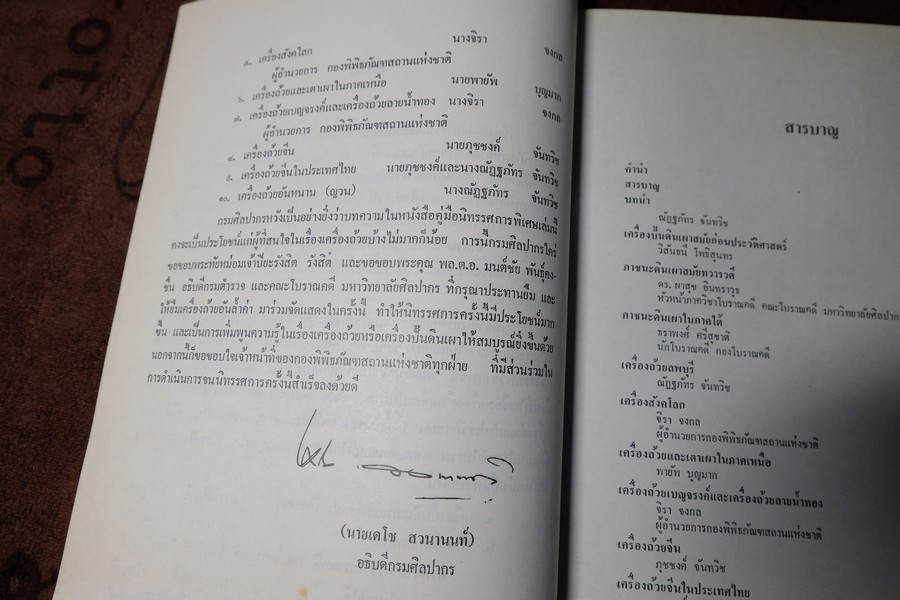 นางจิรา จงกล
๕. เครื่องสังคโลก
ผู้อำนวยการ กองพิพิธภัณฑสถานแห่งชาติ
๖. เครื่องถ้วยและเตาเผาในภาคเหนือ นายพายัพ บุญมาก
๗. เครื่องถ้วยเบญจรงค์และเครื่องถ้วยลายน้ำทอง นางจิรา จงกล
ผู้อำนวยการ กองพิพิธภัณฑสถานแห่งชาติ
๘. เครื่องถ้วยจีน นายภุชชงค์ จันทวิช
๙. เครื่องถ้วยจีนในประเทศไทย นายภุชชงค์และนางณัฏฐภัทร จันทวิช
๑๐. เครื่องถ้วยอันหนาน (ญวน) นางณัฏฐภัทร จันทวิช
กรมศิลปากรหวังเป็นอย่างยิ่งว่าบทความในหนังสือคู่มือนิทรรศการพิเศษเล่มนี้
คงจะเป็นประโยชน์แก่ผู้ที่สนใจในเรื่องเครื่องถ้วยบ้างไม่มากก็น้อย การนี้กรมศิลปากรใคร่
ขอขอบพระทัยหม่อมเจ้าปิยะรังสิต รังสิต และขอขอบพระคุณ พล.ต.อ. มนต์ชัย พันธุ์คง-
ชื่น อธิบดีกรมตำรวจ และคณะโบราณคดี มหาวิทยาลัยศิลปากร ที่กรุณาประทานยืม และ
ให้ยืมเครื่องถ้วยอันล้ำค่า มาร่วมจัดแสดงในครั้งนี้ ทำให้นิทรรศการครั้งนี้มีประโยชน์มาก
ขึ้น และเป็นการเพิ่มพูนความรู้ในเรื่องเครื่องถ้วยหรือเครื่องปั้นดินเผาให้สมบูรณ์ยิ่งขึ้นด้วย
นอกจากนี้ก็ขอขอบใจเจ้าหน้าที่ของกองพิพิธภัณฑสถานแห่งชาติทุกฝ่าย ที่มีส่วนร่วมใน
การดำเนินการจนนิทรรศการครั้งนี้สำเร็จลงด้วยดี
(นายเดโช สวนานนท์)
อธิบดีกรมศิลปากร
สารบาญ
คำนำ
สารบาญ
บทนำ
ณัฏฐภัทร จันทวิช
เครื่องปั้นดินเผาสมัยก่อนประวัติศาสตร์
วิสันธนี โพธิสุนทร
ภาชนะดินเผาสมัยทวารวดี
ดร. ผาสุข อินทราวุธ
หัวหน้าภาควิชาโบราณคดี คณะโบราณคดี มหาวิทยาลัยศิลปากร
ภาชนะดินเผาในภาคใต้
ธราพงศ์ ศรีสุชาติ
นักโบราณคดี กองโบราณคดี
เครื่องถ้วยลพบุรี
ณัฏฐภัทร จันทวิช
เครื่องสังคโลก
จิรา จงกล
ผู้อำนวยการกองพิพิธภัณฑสถานแห่งชาติ
เครื่องถ้วยและเตาเผาในภาคเหนือ
พายัพ บุญมาก
เครื่องถ้วยเบญจรงค์และเครื่องถ้วยลายน้ำทอง
จิรา จงกล
ผู้อำนวยการกองพิพิธภัณฑสถานแห่งชาติ
เครื่องถ้วยจีน
ภุชชงค์ จันทวิช
เครื่องถ้วยจีนในประเทศไทย